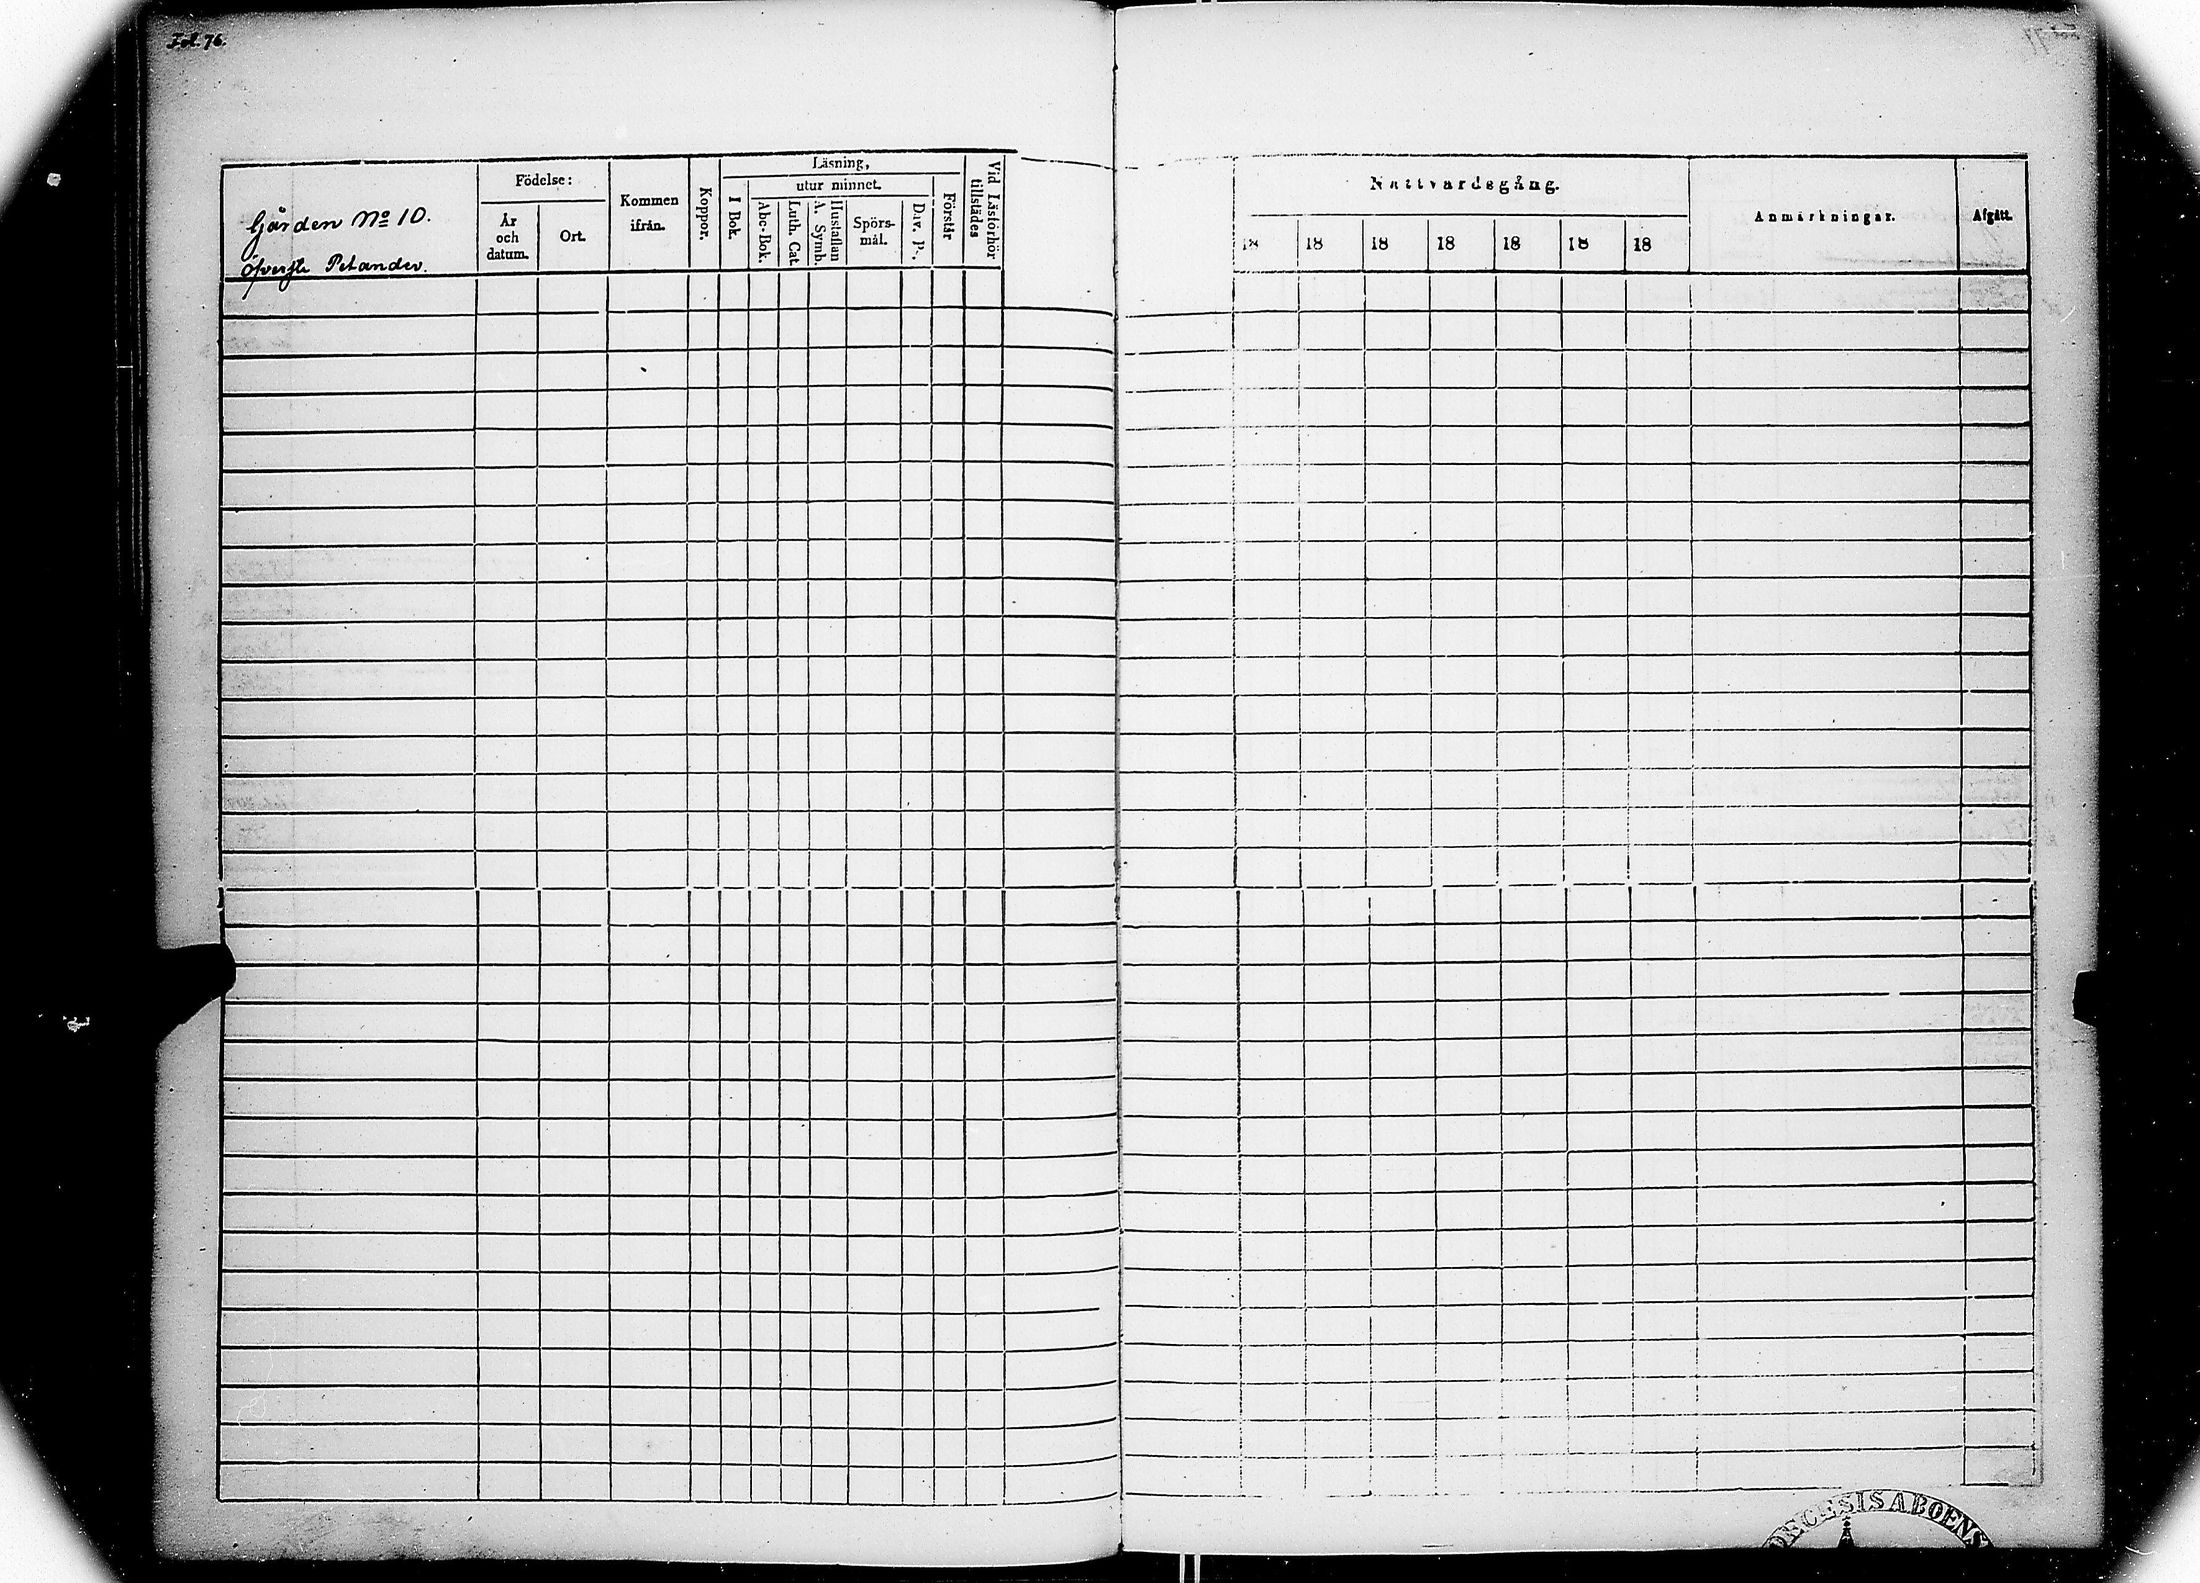 Fol. 76.
Gården No 10.
Öfverste Petander.
Födelse:
År
och
datum.
Ort.
Kommen
ifrån.
Koppor.
Läsning,
I Bok.
utur minnet.
Abc-Bok.
Luth. Cat.
Hustaflan
A. Symb.
Spörs-
mål.
Dav. Ps.
Förstår
Vid Läsförhör
tillstädes
Nattvardsgång.
18 18 18 18 18 18 18
Anmärkningar.
Afgått.
DECESIS ABOENS